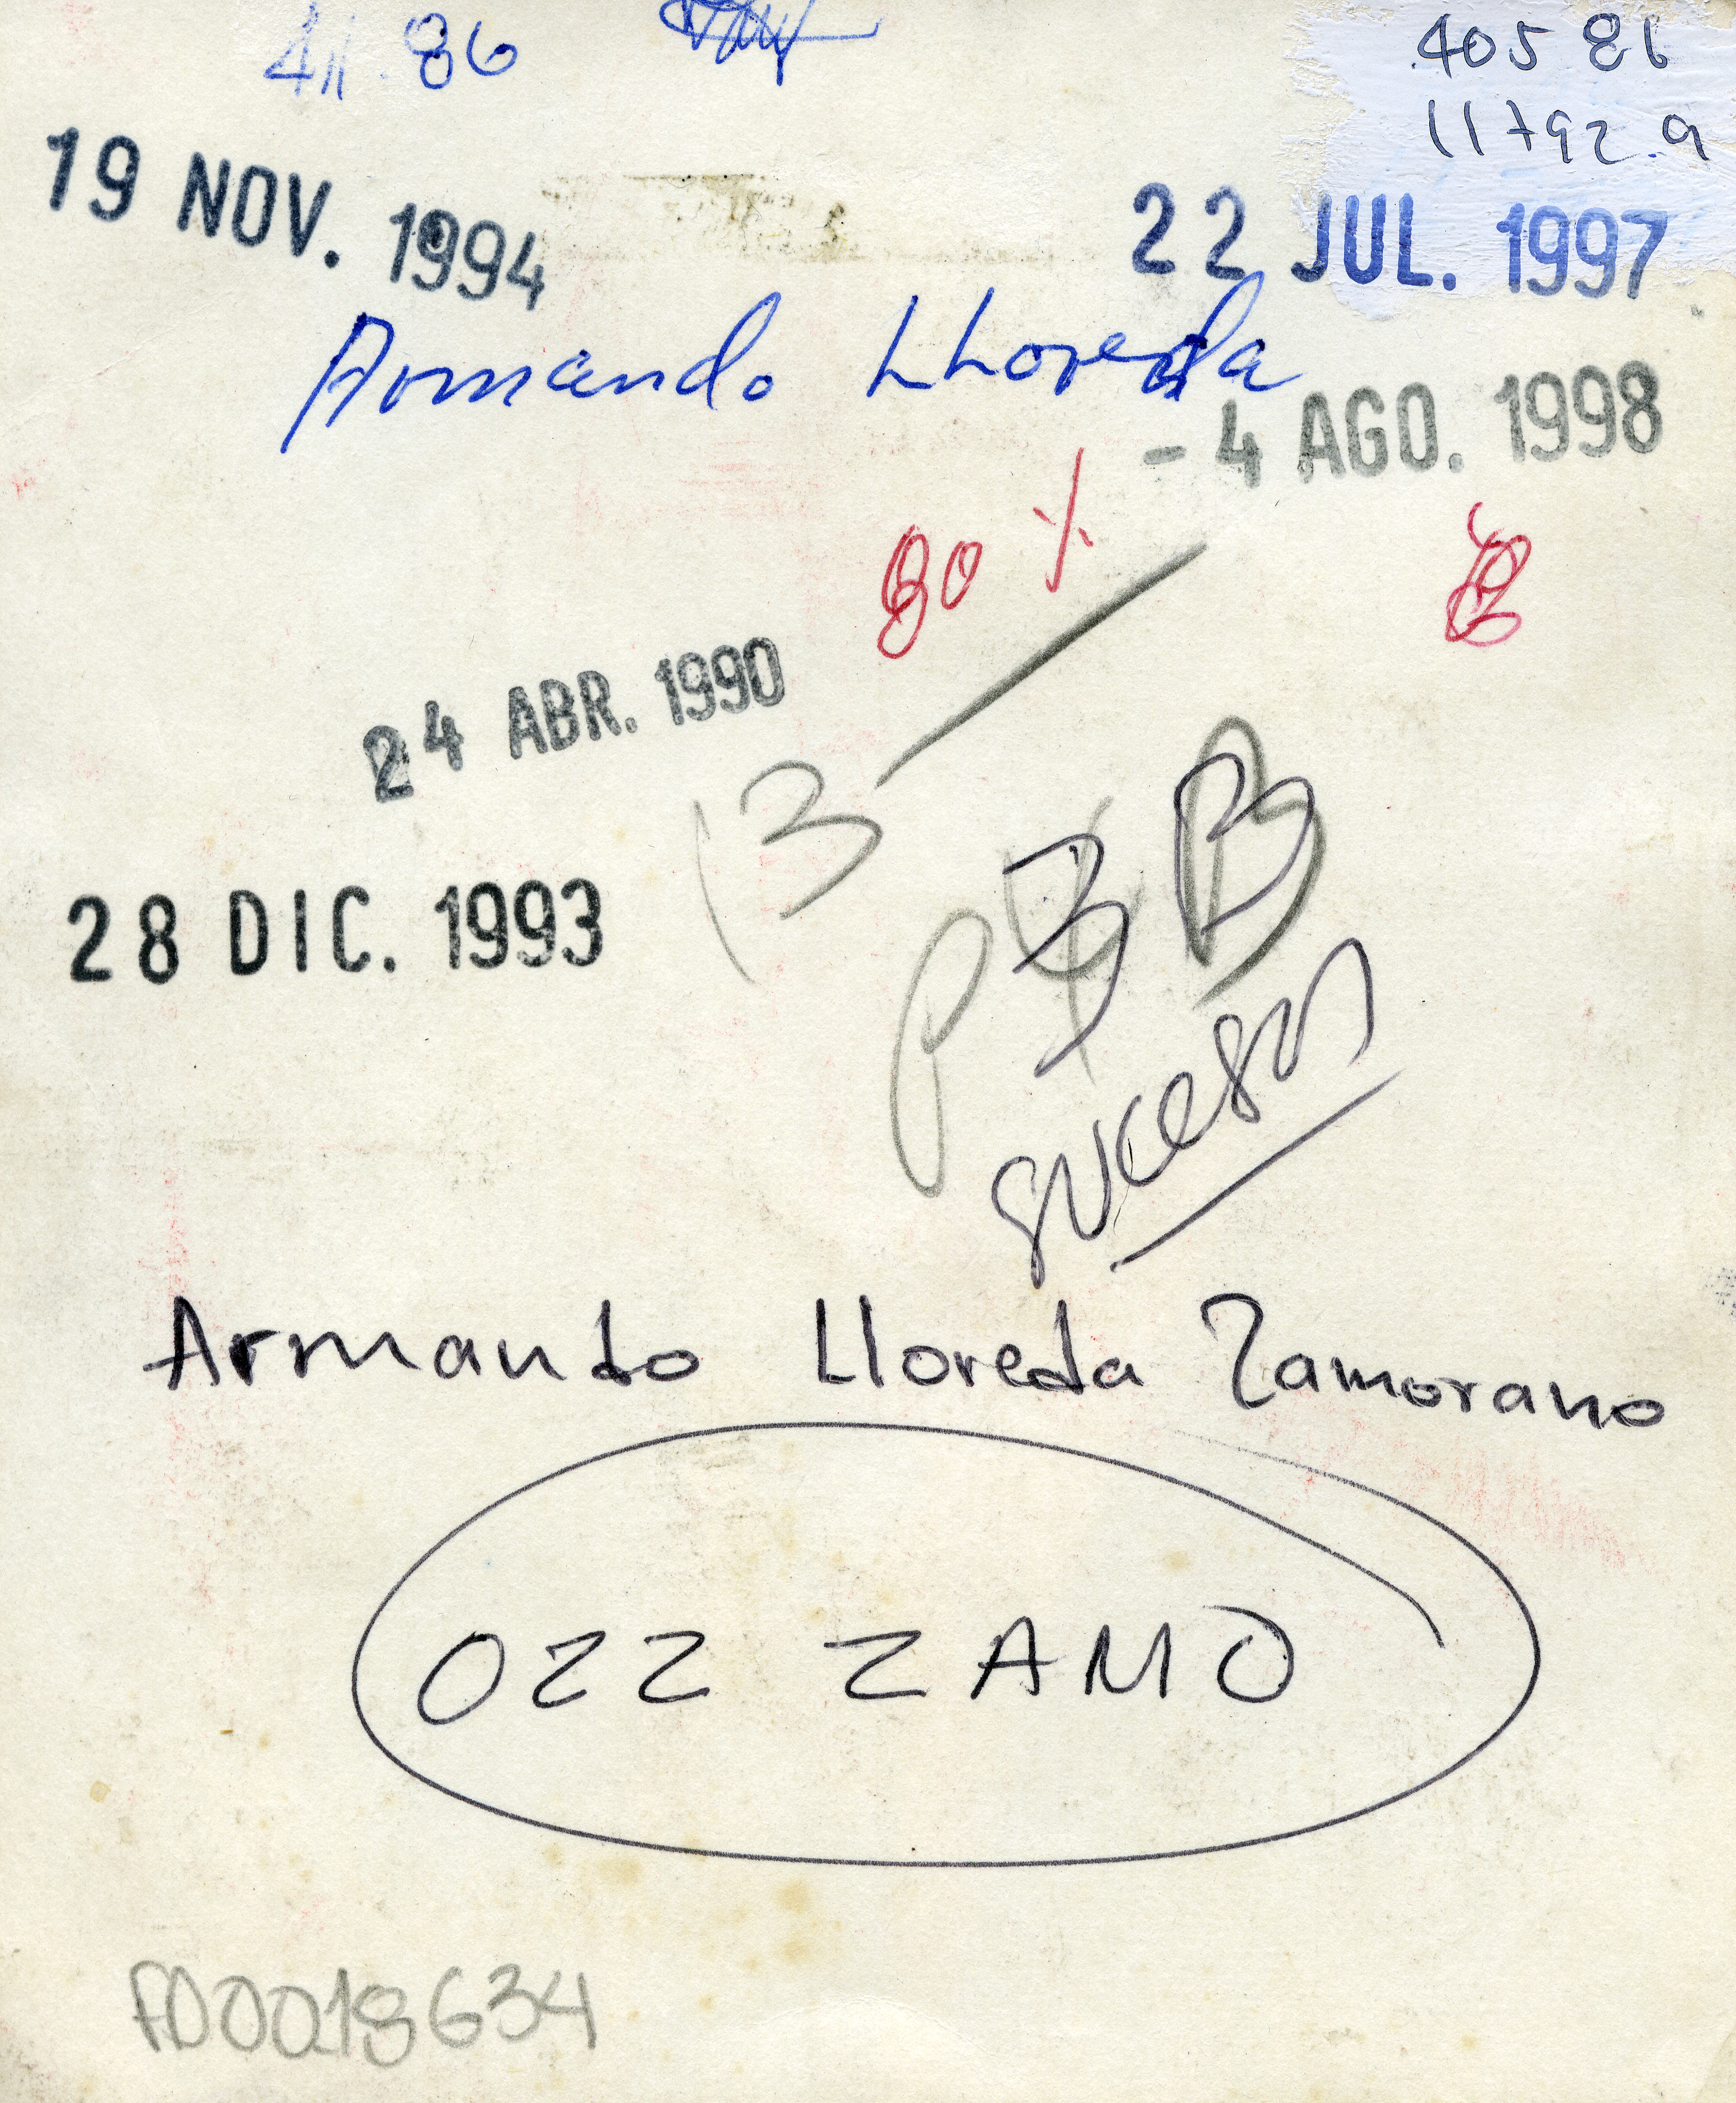 86
405 86
11792.9
19 NOV. 1994
22 JUL. 1997
Armando LLoreda
- 4 AGO. 1998
80 %
24 ABR. 1990
13
28 DIC. 1993
P
3 B
sucesos
Armando Lloreda Zamorano
OZZ ZAMO
FD0018634